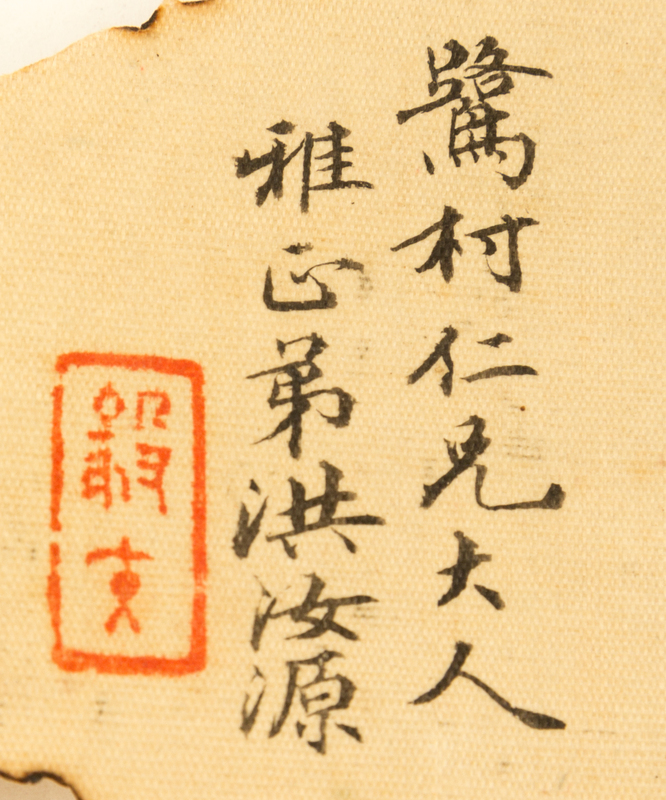 鷺村仁兄大人
雅正弟洪汝源